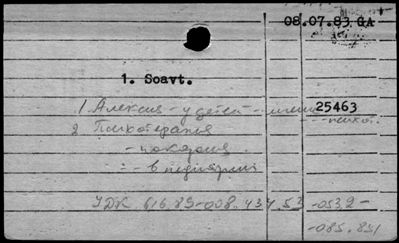 08.07.83 GA
1. Soavt.
25463
1 Алексия - у детей -
- психот.
2 Психотерапия
-
- - в педиатрии
УДК 616.89-008.434.53 -053.2-
-085.851